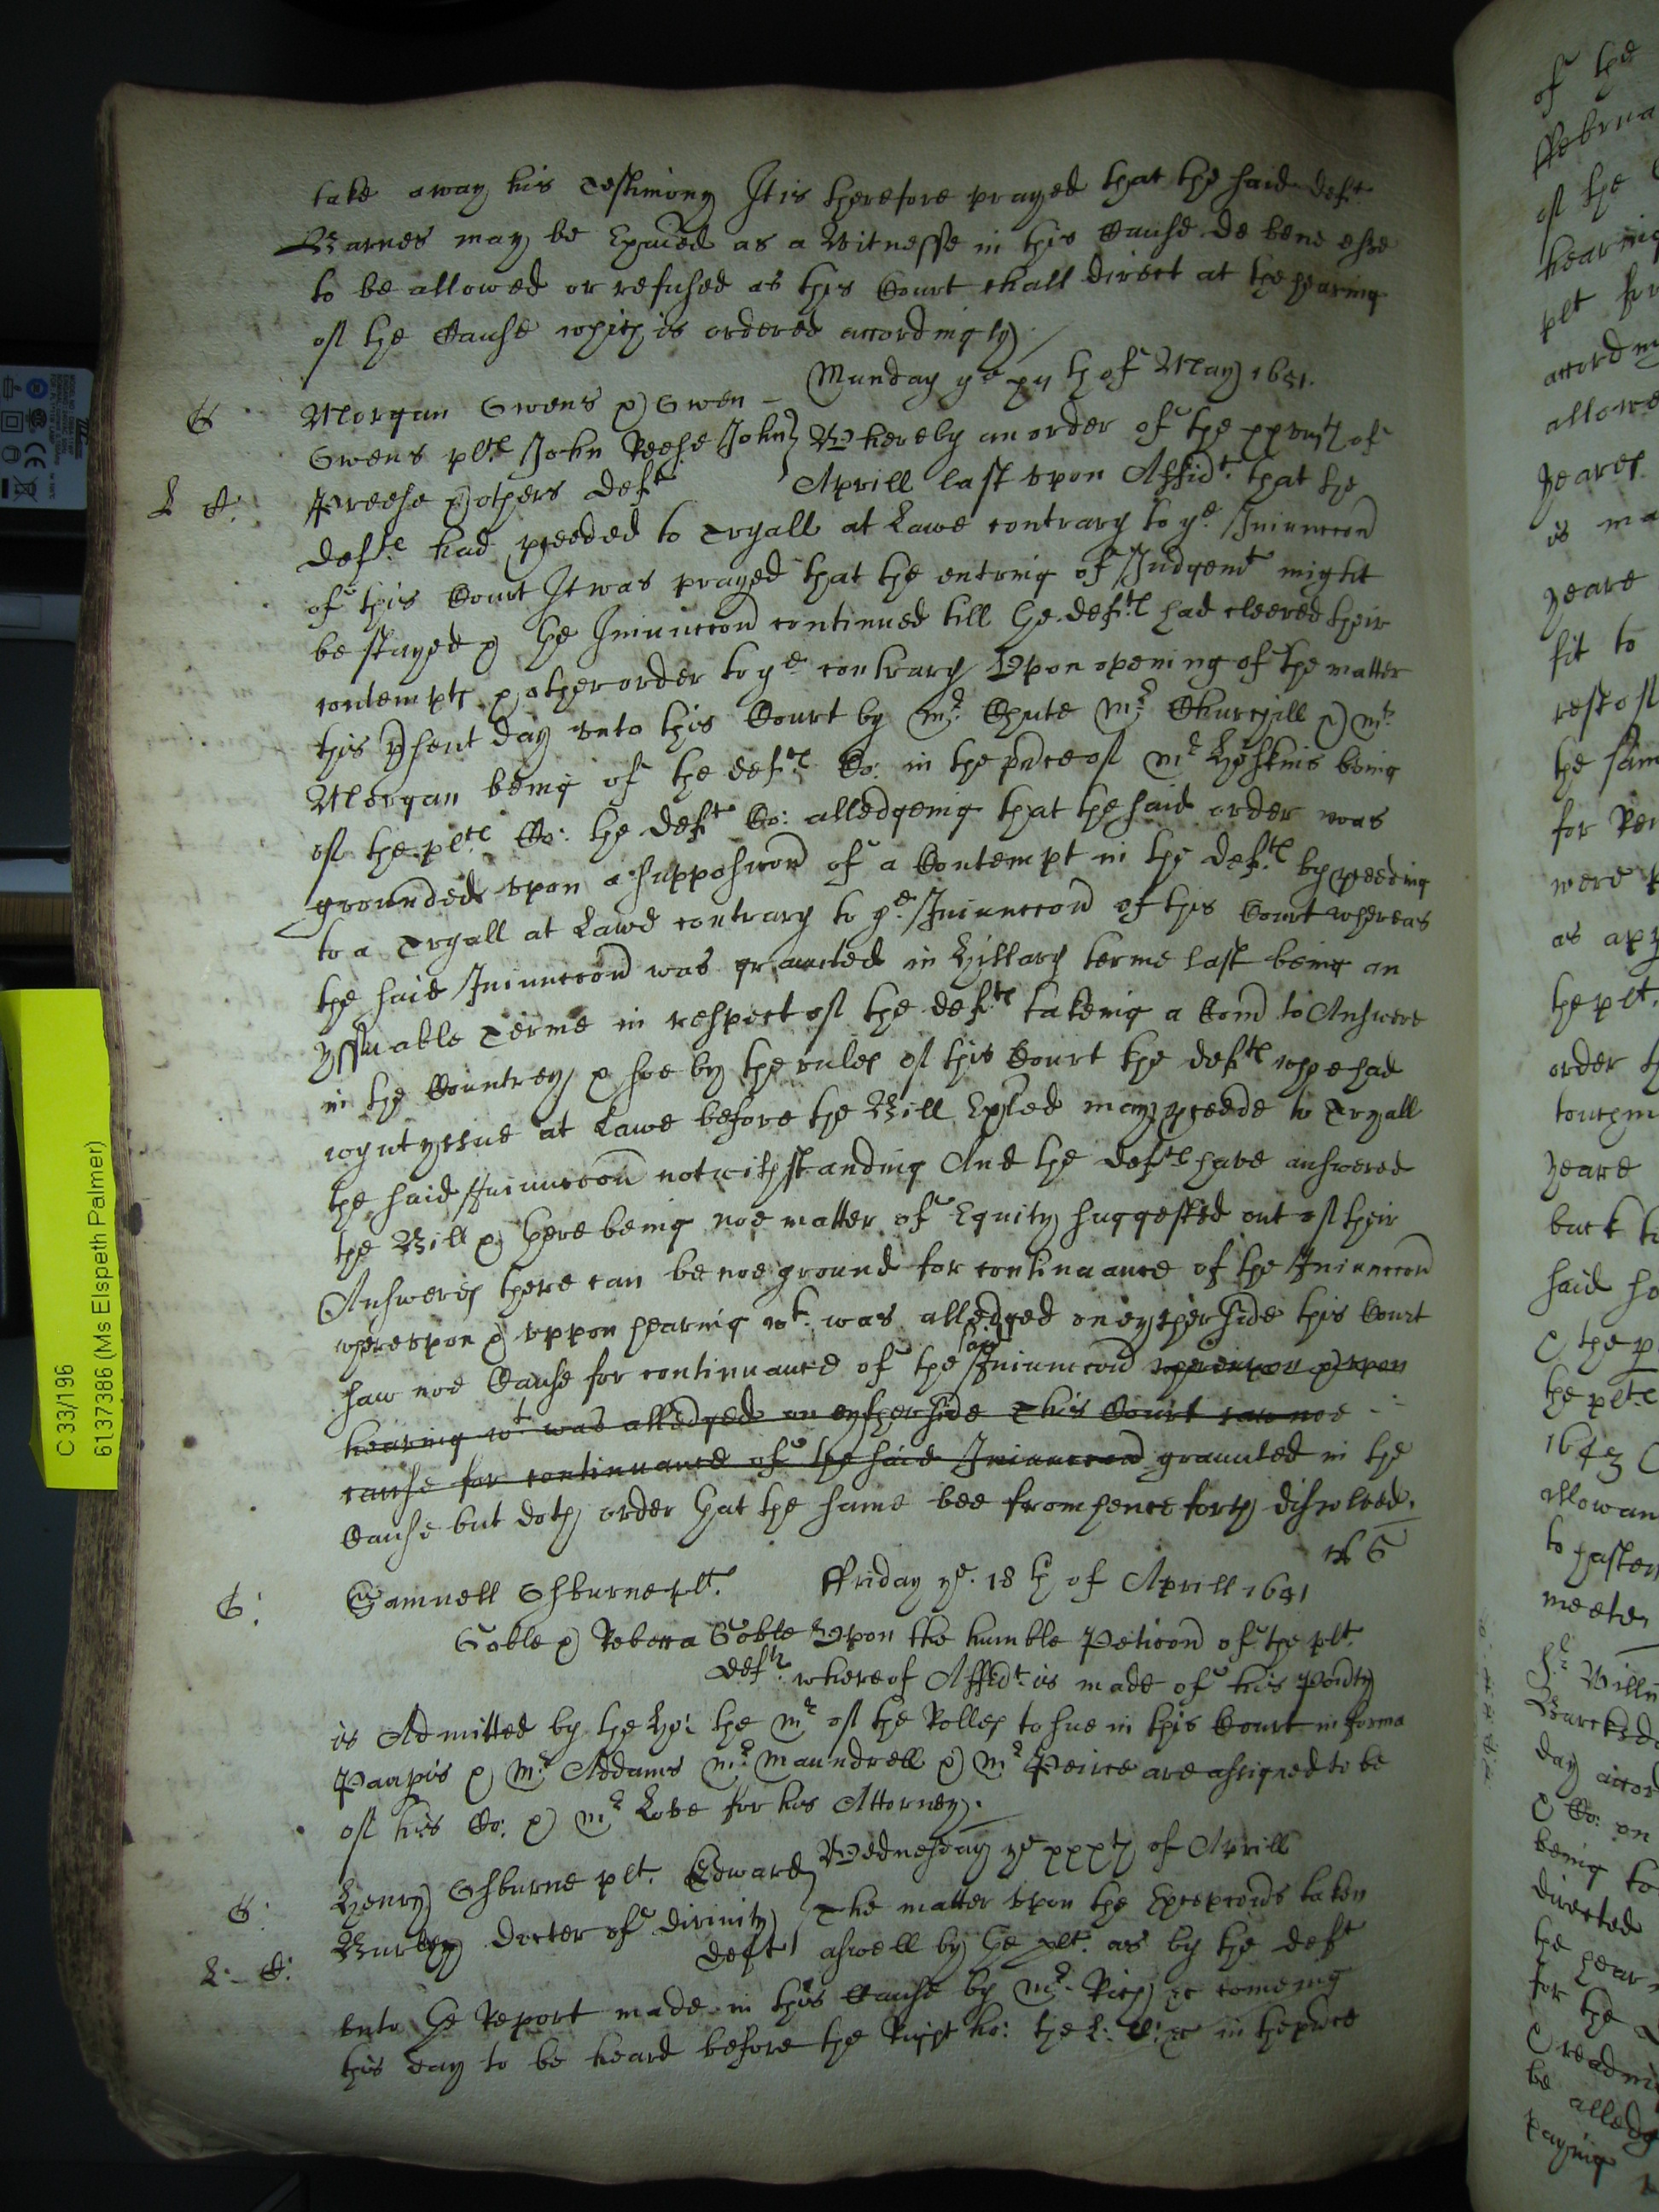 take away his Testimony It is therefore prayed that the said deft
Barnes may be Exaied as a Witnesse in this Cause de bene esse
to be allowed or refused as this Court shall direct at the hearing
of the Cause which is ordered accordingly
Munday ye xijth of May 1651.
O
Morgan Owens & Owen
Owens plts John Reese John
Preese & others defts
L C:
Whereby an order of the of
Aprill last upon Affidt. that the
defts had pceeded to Tryall at Lawe contrary to ye Iniunccon
of this Court It was prayed that the entring of Iudgemt might
be stayed & the Iniunccon continued till the defts had cleered their
contempts & other order to ye contrary Upon opening of the matter
this psent day unto this Court by mr. Chute mr Churchill & mr
Morgan being of the defts Co: in the pnce of mr Hoskins being
of the plts Co: the deft Co: alledgeing that the said order was
grounded upon a supposicon of a Contempt in the defts by pceeding
to a Tryall at Lawe contrary to ye Iniunccon of this Court whereas
the said Iniunccon was graunted in Hillary terme last being an
yssuable Terme in respect of the defts takeing a Com to Answere
in the Countrey & soe by the rules of this Court the defts whoe had
ioynt yssue at Lawe before the Bill Exhited may pceede to Tryall
the said Iniunccon notwithstanding And the defts have answered
the Bill & there being noe matter of Equity suggested out of their
Answeres there can be noe ground for continuance of the Iniunccon
whereupon & uppon hearing wt. was alledged on eyther side this Court
saw noe Cause for continuance of the said Iniunccon whereupon & upon
hearing wt was alledged on eyther side This Court saw noe
cause for continuance of the said Iniunccon graunted in the
Cause but doth order that the same bee from henceforth disolved.
O:
Samuell Osburne plt.
Goble & Rebecca Goble
defts
ffriday ye. 18th of Aprill 1651
Upon the humble Peticon of the plt.
whereof Affidt. is made of his Povty
is Admitted by the Ho: the mr of the Rolles to sue in this Court in forma
Paupis & mr Addams mr. Maundrell & mr Peirce are assigned to be
of his Co: & mr Love for his Attorney.
O:
Henry Osburne plt. Edward
Burbey docter of divinity
deft
L: C:
Wednesday ye xxxth of Aprill
The matter upon the Excepcons taken
aswell by the plt. as by the deft
unto the Report made in this Cause by mr. Rich &c comeing
this day to be heard before the Right ho: the L: C: &c in the pnce
C 33/196
6137386 (Ms Elspeth Palmer)
of the
ffebrua
of the
hearing
plt for
accordin
allowe
yeares
is ma
yeare
fit to
rest of
the sam
for Ren
were
as app
the plt.
order th
touchin
yeare
back to
said so
& the p
the plts
1643
allowan
to hasten
meete
day accor
& Co: on
being to
directed
the hear
for the
& readin
be alledg
paying